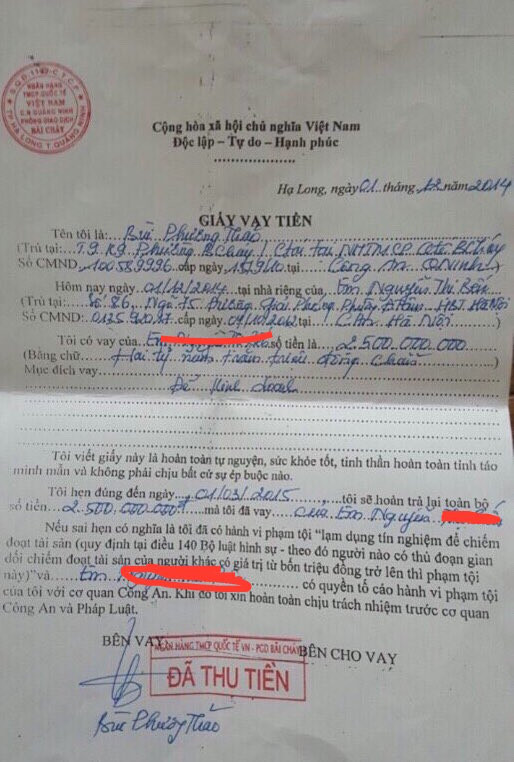 S.G.D: 1140-C.T.C.P
NGÂN HÀNG
TMCP QUỐC TẾ
VIỆT NAM
C.N QUẢNG NINH
PHÒNG GIAO DỊCH
BÃI CHÁY
TP. HẠ LONG T. QUẢNG NINH
Cộng hòa xã hội chủ nghĩa Việt Nam
Độc lập – Tự do – Hạnh phúc
Hạ Long, ngày 01 tháng 12 năm 2014
GIẤY VAY TIỀN
Tên tôi là: Bùi Phương Thảo
(Trú tại: T9 K9 Phường B Cháy /
Số CMND: cấp ngày tại Công an Q Ninh)
Hôm nay ngày 01/12/2014 tại nhà riêng của Em Nguyễn Thị
(Trú tại: Số 86 Ngõ 75 đường Giải Phóng HBT Hà Nội
Số CMND: cấp ngày tại CA Hà Nội)
Tôi có vay của Em số tiền là 2.500.000.000
(Bằng chữ Hai tỷ năm trăm triệu đồng chẵn)
Mục đích vay
Để kinh doanh
Tôi viết giấy này là hoàn toàn tự nguyện, sức khỏe tốt, tinh thần hoàn toàn tỉnh táo
minh mẫn và không phải chịu bất cứ sự ép buộc nào.
Tôi hẹn đúng đến ngày 01/03/2015 tôi sẽ hoàn trả lại toàn bộ
số tiền 2.500.000.000đ mà tôi đã vay của Em Nguyễn
Nếu sai hẹn có nghĩa là tôi đã có hành vi phạm tội "lạm dụng tín nghiệm để chiếm
đoạt tài sản (quy định tại điều 140 Bộ luật hình sự - theo đó người nào có thủ đoạn gian
dối chiếm đoạt tài sản của người khác có giá trị từ bốn triệu đồng trở lên thì phạm tội
này)"và Em có quyền tố cáo hành vi phạm tội
của tôi với cơ quan Công An. Khi đó tôi xin hoàn toàn chịu trách nhiệm trước cơ quan
Công An và Pháp Luật.
BÊN VAY
BÊN CHO VAY
NGÂN HÀNG TMCP QUỐC TẾ VN - PGD BÃI CHÁY
ĐÃ THU TIỀN
Bùi Phương Thảo